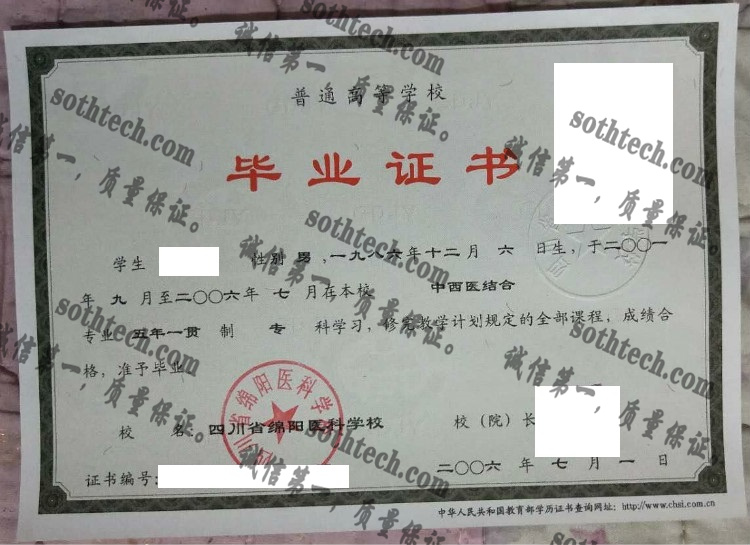 普通高等学校
毕业证书
学生 性别 男 ,一九八六年十二月 六 日生，于二〇〇一
年 九 月至二〇〇六年 七 月在本校 中西医结合
专业 五年一贯 制 专 科学习，修完教学计划规定的全部课程，成绩合
格，准予毕业
校 名：四川省绵阳医科学校 校（院）长
四川省绵阳医科学
二〇〇六 年 七 月 一 日
证书编号：
中华人民共和国教育部学历证书查询网址：http://www.chsi.com.cn
sothtech.com
诚信第一，质量保证。
sothtech.com
诚信第一，质量保证。
sothtech.com
诚信第一，质量保证。
sothtech.com
诚信第一，质量保证。
sothtech.com
诚信第一，质量保证。
sothtech.com
诚信第一，质量保证。
sothtech.com
诚信第一，质量保证。
sothtech.com